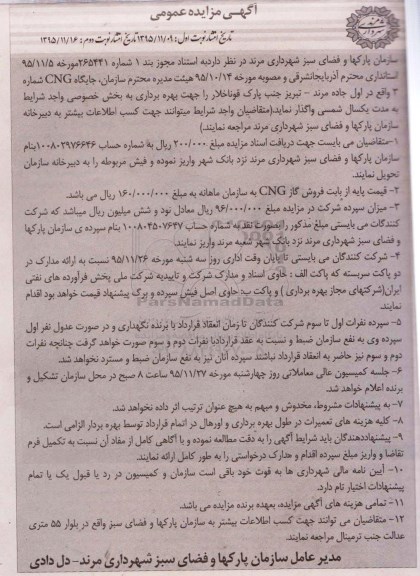 آگهی مزایده عمومی
تاریخ انتشار نوبت اول: ۱۳۹۵/۱۱/۰۹ تاریخ انتشار نوبت دوم: ۱۳۹۵/۱۱/۱۶
سازمان پارکها و فضای سبز شهرداری مرند در نظر دارد به استناد مجوز بند ۱ شماره ۲۶۵۴۴۱ مورخه ۹۵/۱۱/۵
استانداری محترم آذربایجانشرقی و مصوبه مورخه ۹۵/۱۰/۱۴ هیئت مدیره محترم سازمان، جایگاه CNG شماره
۳ واقع در اول جاده مرند - تبریز جنب پارک قوناخلار را جهت بهره برداری به بخش خصوصی واجد شرایط
به مدت یکسال شمسی واگذار نماید(متقاضیان واجد شرایط میتوانند جهت کسب اطلاعات بیشتر به دبیرخانه
سازمان پارکها و فضای سبز شهرداری مرند مراجعه نمایند)
۱- متقاضیان می بایست جهت دریافت اسناد مزایده مبلغ ۲۰۰/۰۰۰ ریال به شماره حساب ۱۰۰۸۰۲۹۷۶۶۴۶ بنام
سازمان پارکها و فضای سبز شهرداری مرند نزد بانک شهر واریز نموده و فیش مربوطه را به دبیرخانه سازمان
تحویل نمایند.
۲- قیمت پایه از بابت فروش گاز CNG به سازمان ماهانه به مبلغ ۱۶۰/۰۰۰/۰۰۰ ریال می باشد.
۳- میزان سپرده شرکت در مزایده مبلغ ۹۶/۰۰۰/۰۰۰ ریال معادل نود و شش میلیون ریال میباشد که شرکت
کنندگان می بایستی مبلغ مذکور را بصورت نقد به شماره حساب ۱۰۰۸۰۴۵۰۷۶۴۷ بنام سپرده ی سازمان پارکها
و فضای سبز شهرداری مرند نزد بانک شهر شعبه مرند واریز نمایند.
۴- شرکت کنندگان می بایستی تا پایان وقت اداری روز سه شنبه مورخه ۹۵/۱۱/۲۶ نسبت به ارائه مدارک در
دو پاکت سربسته که پاکت الف : حاوی اسناد و مدارک شرکت و تاییدیه شرکت ملی پخش فرآورده های نفتی
ایران(شرکتهای مجاز بهره برداری ) و پاکت ب: حاوی اصل فیش سپرده و برگ پیشنهاد قیمت خواهد بود اقدام
نمایند.
۵- سپرده نفرات اول تا سوم شرکت کنندگان تا زمان انعقاد قرارداد با برنده نگهداری و در صورت عدول نفر اول
سپرده وی به نفع سازمان ضبط و نسبت به عقد قرارداد با نفرات دوم و سوم صورت خواهد گرفت چنانچه نفرات
دوم و سوم نیز حاضر به انعقاد قرارداد نباشند سپرده آنان نیز به نفع سازمان ضبط و مسترد نخواهد شد.
۶- جلسه کمیسیون عالی معاملاتی روز چهارشنبه مورخه ۹۵/۱۱/۲۷ ساعت ۸ صبح در محل سازمان تشکیل و
برنده اعلام خواهد شد.
۷- به پیشنهادات مشروط، مخدوش و مبهم به هیچ عنوان ترتیب اثر داده نخواهد شد.
۸- کلیه هزینه های تعمیرات در طول بهره برداری و اورهال در اتمام قرارداد توسط بهره بردار الزامی است.
۹- پیشنهاددهندگان باید شرایط آگهی را به دقت مطالعه نموده و با آگاهی کامل از مفاد آن نسبت به تکمیل فرم
تقاضا و واریز مبلغ سپرده اقدام و مدارک درخواستی را به طور کامل ارائه نمایند.
۱۰- آیین نامه مالی شهرداری ها به قوت خود باقی است سازمان و کمیسیون در رد یا قبول یک یا تمام
پیشنهادات اختیار تام دارد.
۱۱- تمامی هزینه های آگهی مزایده، بعهده برنده مزایده می باشد.
۱۲- متقاضیان می توانند جهت کسب اطلاعات بیشتر به سازمان پارکها و فضای سبز واقع در بلوار ۵۵ متری
عدالت جنب ترمینال مراجعه نمایند.
مدیر عامل سازمان پارکها و فضای سبز شهرداری مرند- دل دادی
ParsNamadData